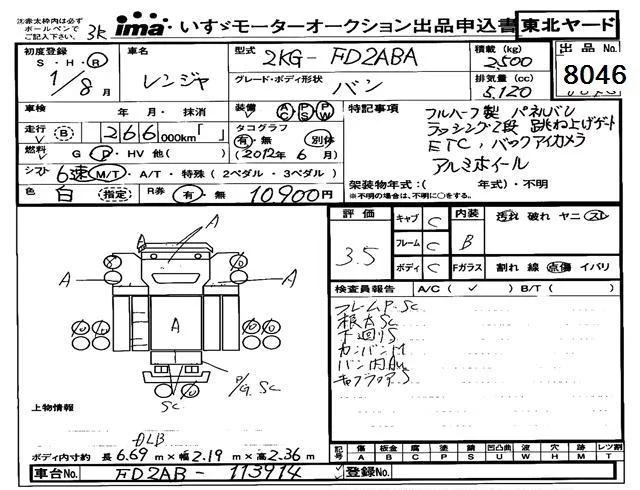 注)赤太枠内は必ずボールペンでご記入下さい。
3K
ima いすゞモーターオークション出品申込書 東北ヤード
初度登録 S・H・R 1/8月
車名 レンジャ
型式 2KG-FD2ABA
積載 (kg) 2,500
出品No. 8046
グレード・ボディ形状 バン
排気量 (cc) 5,120
車検 年 月・抹消
装備 AC PS PW
特記事項
走行 (B) 266,000km「 」
タコグラフ 有・無 別体 (2012年6月)
フルハーフ製 パネルバン
ラッシング2段 跳ね上げゲート
ETC、バックアイカメラ
アルミホイール
燃料 G・D・HV 他( )
シフト 6速 M/T・A/T・特殊 (2ペダル・3ペダル)
架装物年式:( 年式)・不明
※不明の場合は、不明に○をする。
色 白 (指定)
R券 有・無 10,900円
評価 3.5
キャブ C
フレーム C
ボディ C
内装 B 汚れ 破れ ヤニ スレ
Fガラス 割れ 線 点傷 イバリ
検査員報告 A/C( ✓ ) B/T( )
フレームP.Sc
根太Sc
下廻りS
カンバンM
A A A A
Sc
P/G.Sc
上物情報
DLB
ボディ内寸約 長6.69m×幅2.19m×高2.36m
記号 傷 板金 腐 塗 錆 凹凸曲 波 穴 跡 レツ割
A B C P S U W H M T
車台No. FD2AB-113914
登録No.